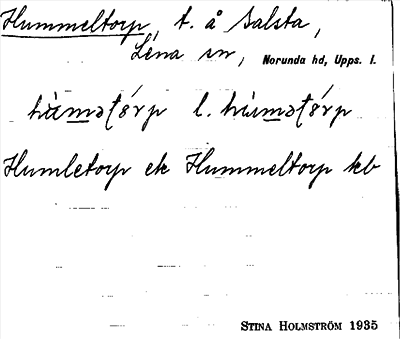 Hummeltorp, t. å Salsta,
Lena sn, Norunda hd, Upps. l.
l.
Humletorp ek Hummeltorp kb
STINA HOLMSTRÖM 1935